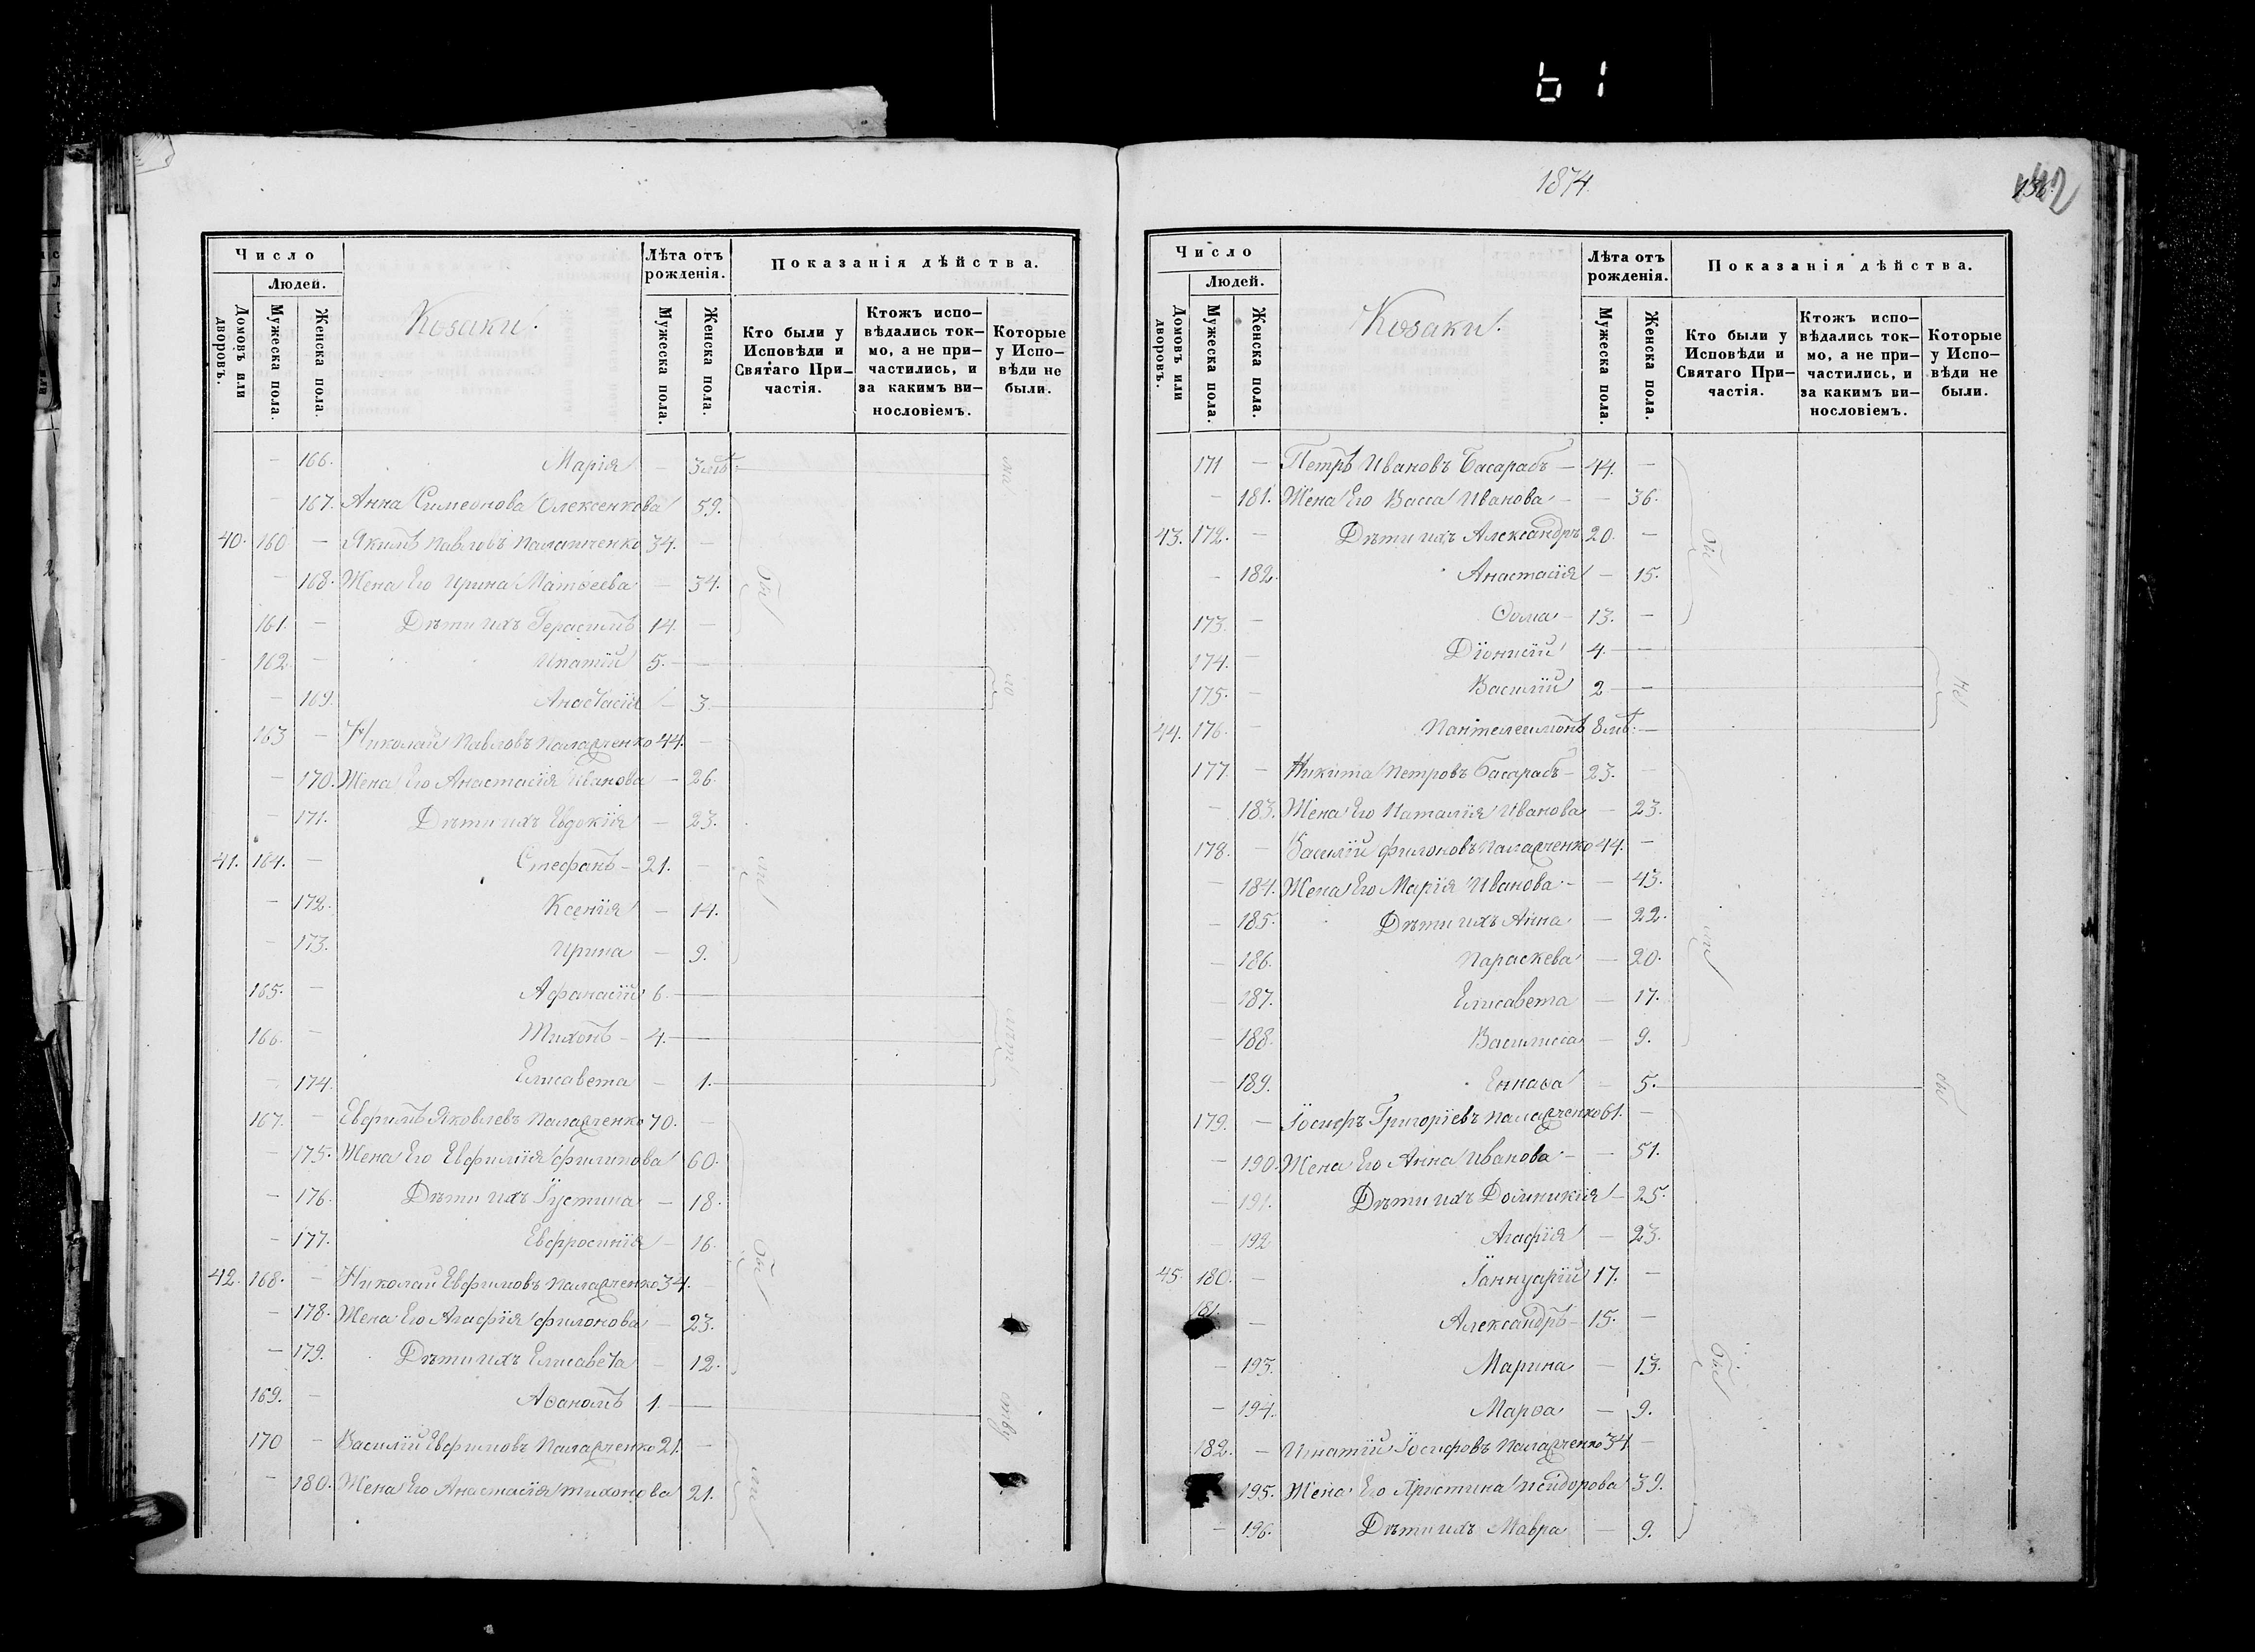 1874.
142
Число
Людей.
Домовъ или дворовъ.
Мужеска пола.
Женска пола.
Козаки.
Лѣта отъ рожденія.
Мужеска пола.
Женска пола.
Показанія дѣйства.
Кто были у Исповѣди и Святаго При-
частія.
Ктожъ испо-
вѣдались ток-
мо, а не при-
частились, и
за какимъ ви-
нословіемъ.
Которые
у Испо-
вѣди не
были.
166. Марія — 3 мѣ.
167. Анна Симеонова Олексенкова 59.
40. 160 — Якимъ Павловъ 34. —
168. Жена Его Ирина Матѳеева — 34.
161. — Дѣти ихъ Герасимъ 14. —
162. — Ипатій 5. —
169. Анастасія — 3.
163 — Николай Павловъ Паладченко 44. —
170. Жена Его Анастасія Иванова — 26.
171. Дѣти ихъ Евдокія — 23.
41. 164. — Стефанъ — 21. —
172. Ксенія — 14.
173. Ирина — 9.
165. — Афанасій 6. —
166. — Тихонъ — 4. —
174. Елисавета — 1.
167. — Евфимъ Яковлевъ Паладченко 70. —
175. Жена Его Евфимія Филипова 60.
176. Дѣти ихъ Іустина — 18.
177. Евфросинія — 16.
42. 168. — Николай Евфимовъ Паладченко 34. —
178. Жена Его Агафія Филонова — 23.
179. Дѣти ихъ Елисавета — 12.
169. — 1. —
170 — Василій Евфимовъ Паладченко 21. —
180. Жена Его Анастасія Тихонова 21.
Число
Людей.
Домовъ или дворовъ.
Мужеска пола.
Женска пола.
Козаки.
Лѣта отъ рожденія.
Мужеска пола.
Женска пола.
Показанія дѣйства.
Кто были у
Исповѣди и
Святаго При-
частія.
Ктожъ испо-
вѣдались ток-
мо, а не при-
частились, и
за какимъ ви-
нословіемъ.
Которые
у Испо-
вѣди не
были.
171 — Петръ Ивановъ Басарабъ — 44. —
181. Жена Его Васса Иванова — — 36.
43. 172. — Дѣти ихъ Александръ 20. —
182. Анастасія — 15.
173. — Ѳома — 13. —
174. — Діонисій 4. —
175. — Василій 2 —
44. 176. — Пантелеимонъ 8 мѣ. —
177. — Никита Петровъ Басарабъ — 23. —
183. Жена Его Наталія Иванова — 23.
178. — Василій Филоновъ Паладченко 44. —
184. Жена Его Марія Иванова — — 43.
185. Дѣти ихъ Анна — 22.
186. Параскева — 20.
187. Елисавета — 17.
188. Василисса — 9.
189. — 5.
179. — Іосифъ Григоріевъ Паладченко 61. —
190. Жена Его Анна Иванова — — 51.
191. Дѣти ихъ Домникія — 25.
192. Агафія — 23.
45. 180. — Іаннуарій 17. —
181. — Александръ — 15. —
193. Марина — 13.
194. Марѳа — 9.
182. — Игнатій Іосифовъ Паладченко 34 —
195. Жена Его Христина Исидорова 39.
196. Дѣти ихъ Мавра — 9.